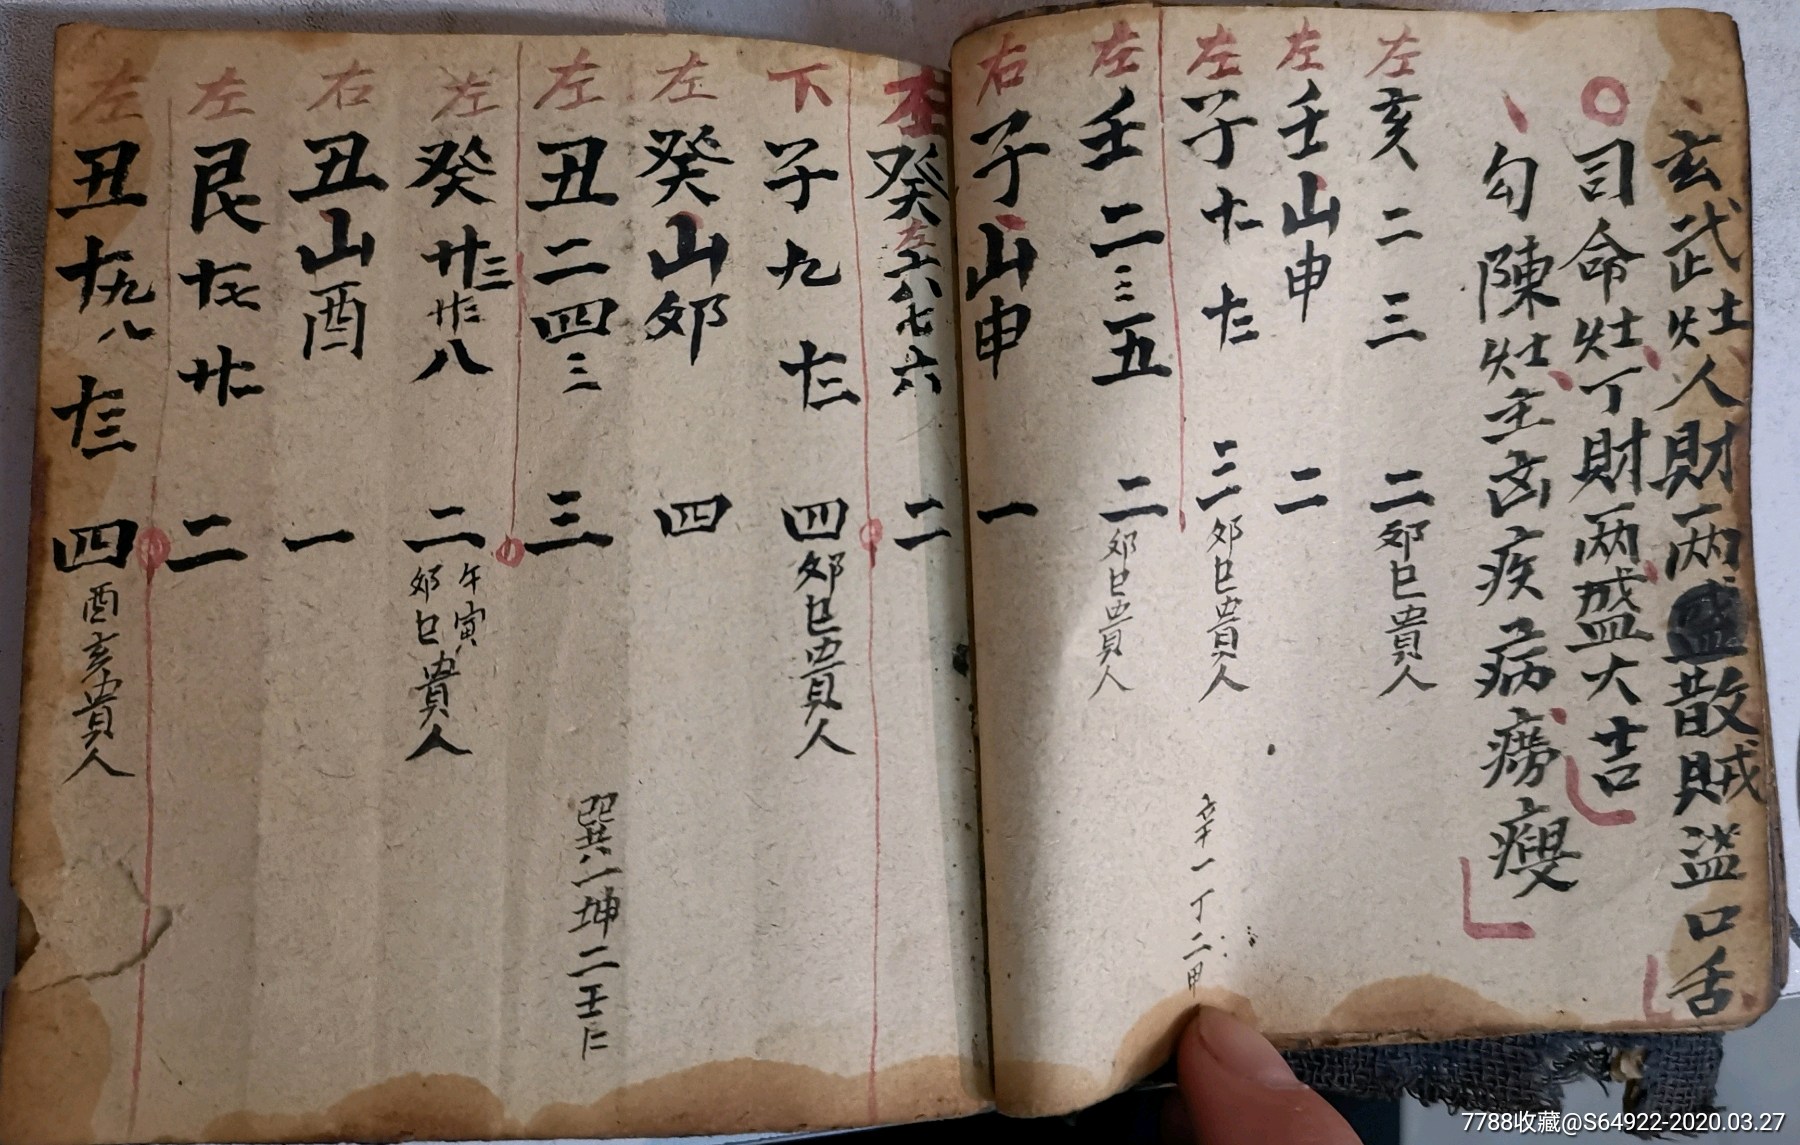 玄武灶人財両盛散賊盜口舌
司命灶丁財両盛大吉
勾陳灶主凶疾病癆瘦
左亥二三 二 夘巳貴人
左壬山申 二
左子十二 十三 三二 夘巳貴人
辛一丁二甲
左壬二三五 二 夘巳貴人
右子山申 一
癸左六八七六 二
下子九 十三 四 夘巳貴人
左癸山夘 四
左丑二四三 三
巽六一坤二壬仁
左癸廿三廿三八 二 午寅夘巳貴人
右丑山酉 一
左艮十七廿二 二
左丑十九八十三 四 酉亥貴人
7788收藏@S64922-2020.03.27